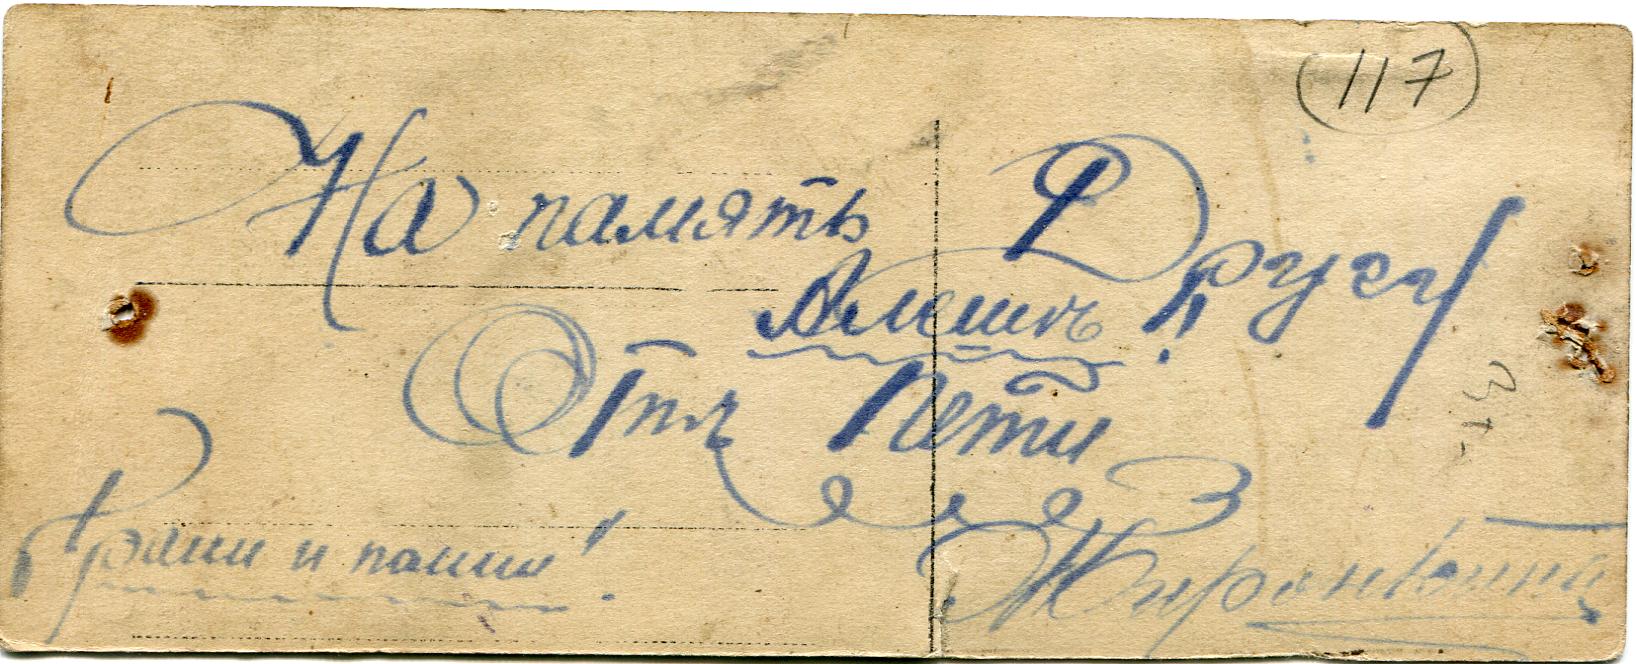 (117)
На память Другу
Алешѣ
Отъ Пети
Храни и помни!